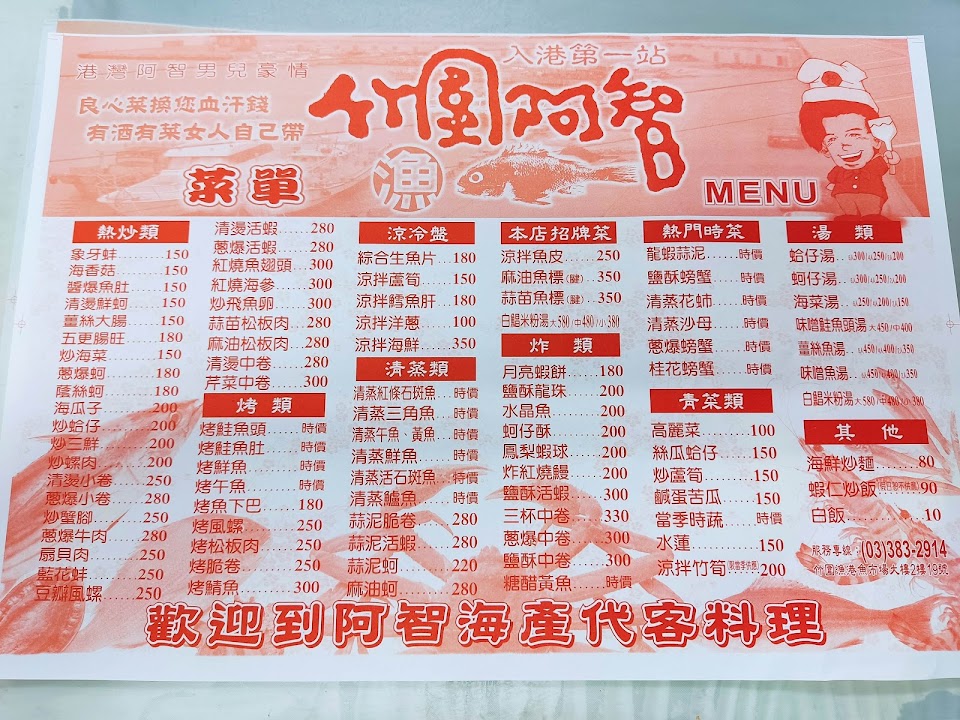 入港第一站
港灣阿智男兒豪情
良心菜換您血汗錢
有酒有菜女人自己帶
竹圍阿智
漁
菜單
MENU
熱炒類
象牙蚌......150
海香菇......150
醬爆魚肚......150
清燙鮮蚵......150
薑絲大腸......150
五更腸旺......180
炒海菜......150
蔥爆蚵......180
蔭絲蚵......180
海瓜子......200
炒蛤仔......200
炒三鮮......200
炒螺肉......200
清燙小卷......250
蔥爆小卷......280
炒蟹腳......250
蔥爆牛肉......280
扇貝肉......250
藍花蚌......250
豆瓣風螺......250
清燙活蝦......280
蔥爆活蝦......280
紅燒魚翅頭...300
紅燒海參......300
炒飛魚卵......300
蒜苗松板肉...280
麻油松板肉...280
清燙中卷......280
芹菜中卷......300
烤 類
烤鮭魚頭......時價
烤鮭魚肚......時價
烤鮮魚......時價
烤午魚......時價
烤魚下巴......180
烤風螺......250
烤松板肉......250
烤脆卷......250
烤鯖魚......300
涼冷盤
綜合生魚片...180
涼拌蘆筍......150
涼拌鱈魚肝...180
涼拌洋蔥......100
涼拌海鮮......350
清蒸類
清蒸紅條石斑魚...時價
清蒸三角魚...時價
清蒸午魚、黃魚...時價
清蒸鮮魚......時價
清蒸活石斑魚...特價
清蒸鱸魚......時價
蒜泥脆卷......280
蒜泥活蝦......280
蒜泥蚵......220
麻油蚵......280
本店招牌菜
涼拌魚皮......250
麻油魚標(鰎)...350
蒜苗魚標(鰎)...350
白鯧米粉湯大580/中480/小380
炸 類
月亮蝦餅......180
鹽酥龍珠......200
水晶魚......200
蚵仔酥......200
鳳梨蝦球......200
炸紅燒鰻......200
鹽酥活蝦......300
三杯中卷......330
蔥爆中卷......300
鹽酥中卷......300
糖醋黃魚......時價
熱門時菜
龍蝦蒜泥......時價
鹽酥螃蟹......時價
清蒸花蛳......時價
清蒸沙母......時價
蔥爆螃蟹......時價
桂花螃蟹......時價
青菜類
高麗菜......100
絲瓜蛤仔......150
炒蘆筍......150
鹹蛋苦瓜......150
當季時蔬......時價
水蓮......150
涼拌竹筍(限當季供應)200
湯 類
蛤仔湯...大300/中250/小200
蚵仔湯...大300/中250/小200
海菜湯...大250/中200/小150
味噌鮭魚頭湯大450/中400
薑絲魚湯...大450/中400/小350
味噌魚湯...大450/中400/小350
白鯧米粉湯大580/中480/小380
其 他
海鮮炒麵......80
蝦仁炒飯(假日恕不供應)90
白飯......10
服務專線：(03)383-2914
竹圍漁港魚市場大樓2樓19號
歡迎到阿智海產代客料理